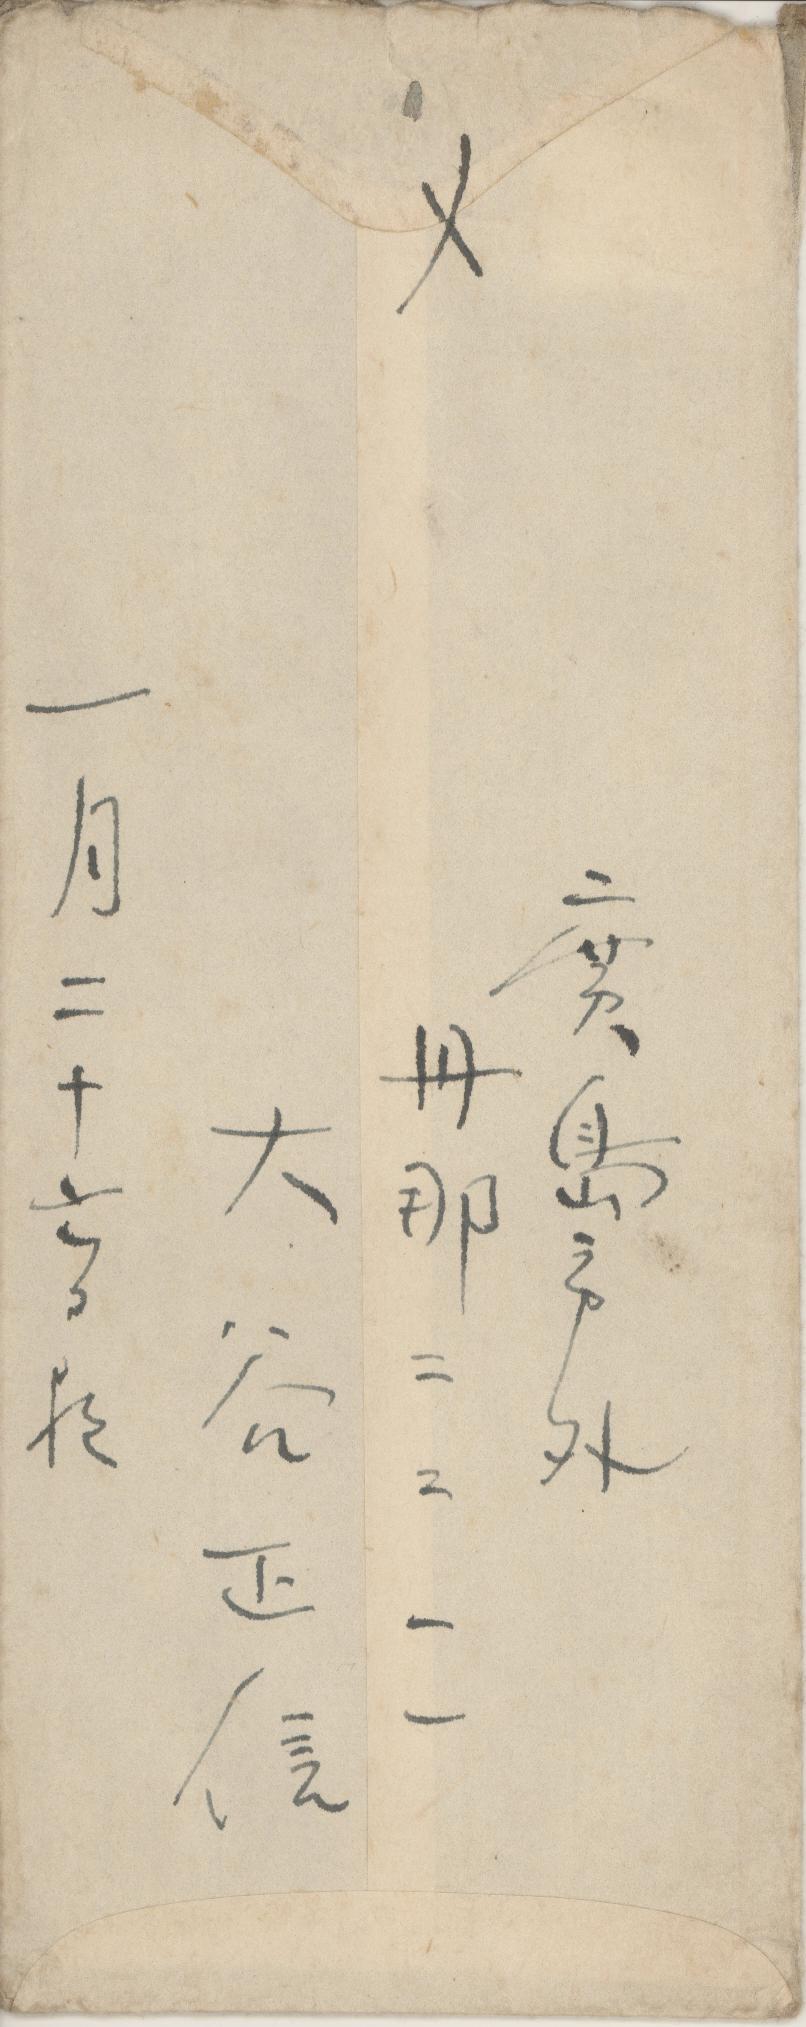 〆
廣島市外
丹那二二一一
大谷正信
一月二十六日夜